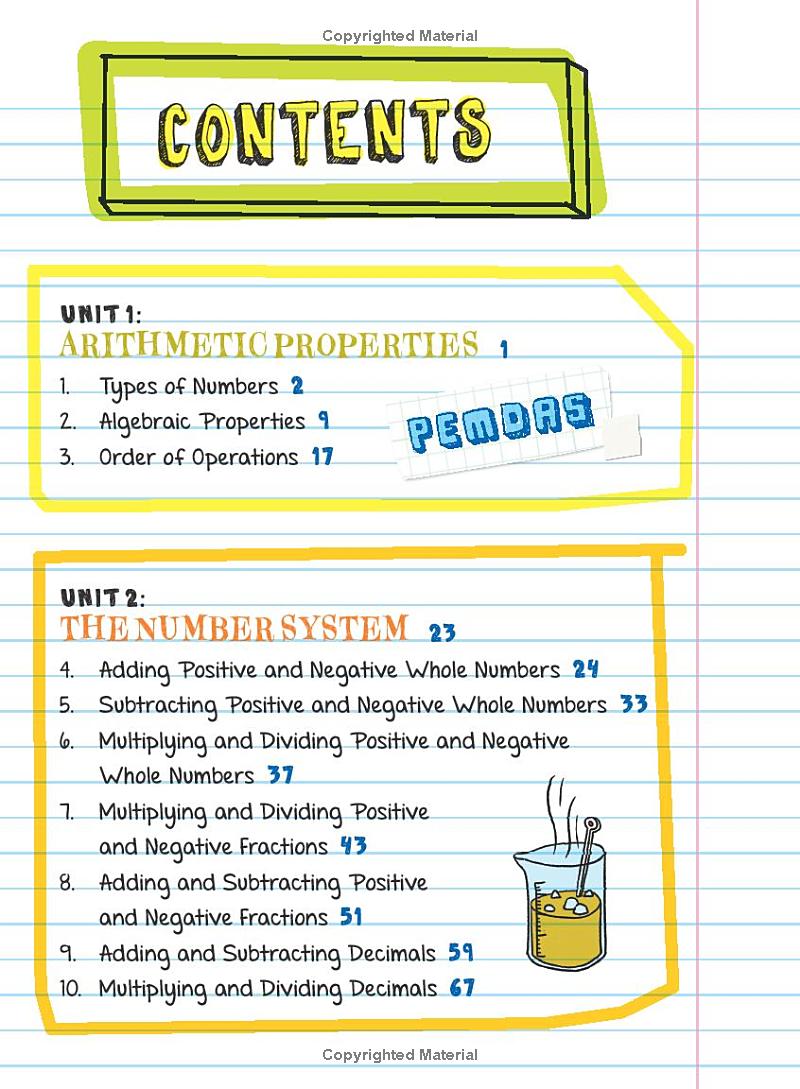 Copyrighted Material
CONTENTS
UNIT 1:
ARITHMETIC PROPERTIES 1
1. Types of Numbers 2
2. Algebraic Properties 9
3. Order of Operations 17
PEMDAS
UNIT 2:
THE NUMBER SYSTEM 23
4. Adding Positive and Negative Whole Numbers 24
5. Subtracting Positive and Negative Whole Numbers 33
6. Multiplying and Dividing Positive and Negative
Whole Numbers 37
7. Multiplying and Dividing Positive
and Negative Fractions 43
8. Adding and Subtracting Positive
and Negative Fractions 51
9. Adding and Subtracting Decimals 59
10. Multiplying and Dividing Decimals 67
Copyrighted Material